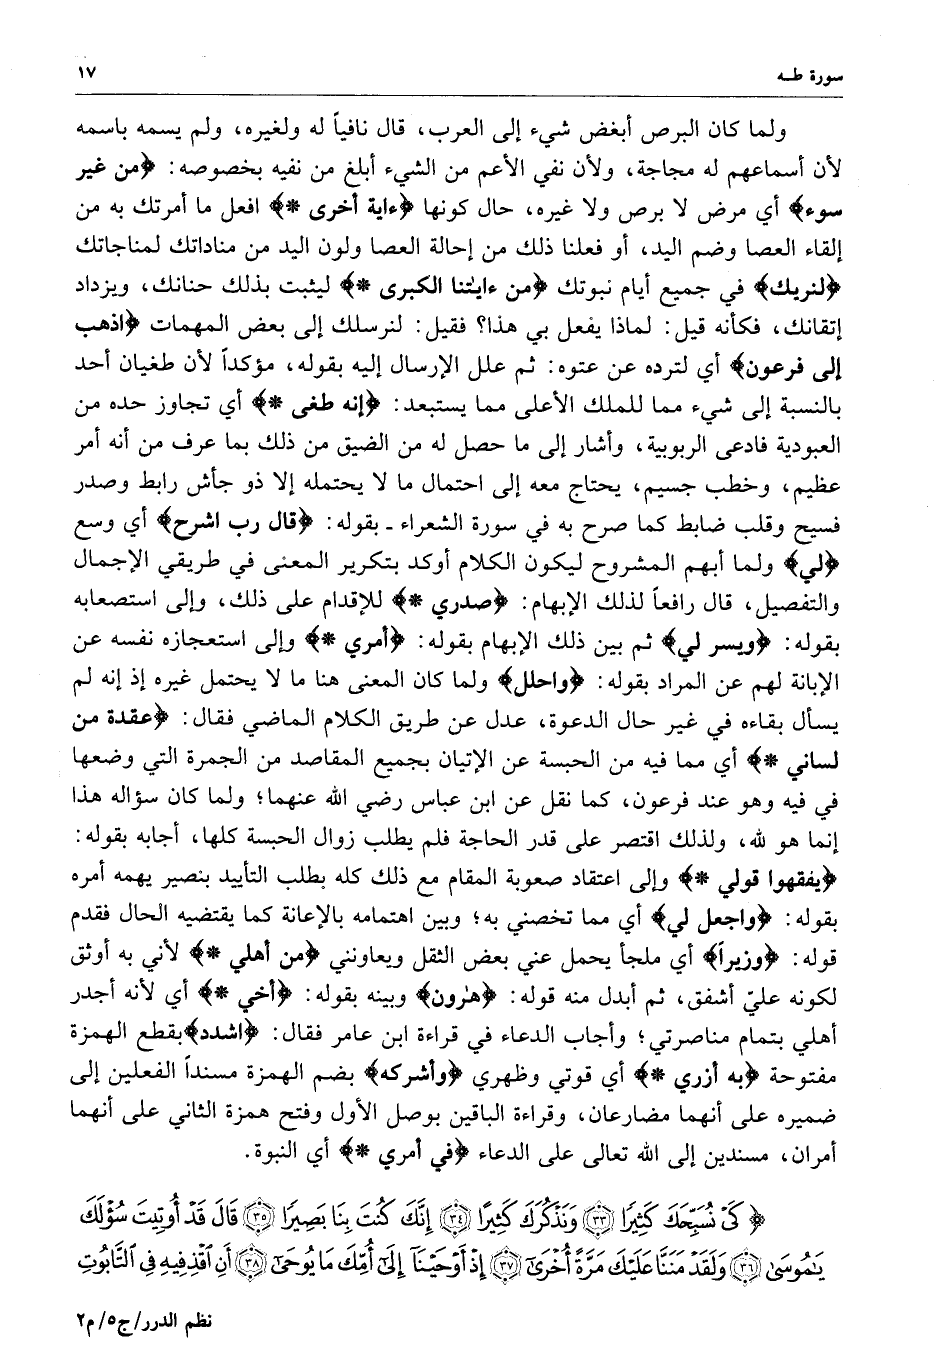 سورة طـه ١٧
ولما كان البرص أبغض شيء إلى العرب، قال نافياً له ولغيره، ولم يسمه باسمه
لأن أسماعهم له مجاجة، ولأن نفي الأعم من الشيء أبلغ من نفيه بخصوصه: ﴿من غير
سوء﴾ أي مرض لا برص ولا غيره، حال كونها ﴿ءاية أخرى *﴾ افعل ما أمرتك به من
إلقاء العصا وضم اليد، أو فعلنا ذلك من إحالة العصا ولون اليد من مناداتك لمناجاتك
﴿لنريك﴾ في جميع أيام نبوتك ﴿من ءايٰتنا الكبرى *﴾ ليثبت بذلك جنانك، ويزداد
إتقانك، فكأنه قيل: لماذا يفعل بي هذا؟ فقيل: لنرسلك إلى بعض المهمات ﴿اذهب
إلى فرعون﴾ أي لترده عن عتوه: ثم علل الإرسال إليه بقوله، مؤكداً لأن طغيان أحد
بالنسبة إلى شيء مما للملك الأعلى مما يستبعد: ﴿إنه طغى *﴾ أي تجاوز حده من
العبودية فادعى الربوبية، وأشار إلى ما حصل له من الضيق من ذلك بما عرف من أنه أمر
عظيم، وخطب جسيم، يحتاج معه إلى احتمال ما لا يحتمله إلا ذو جأش رابط وصدر
فسيح وقلب ضابط كما صرح به في سورة الشعراء ـ بقوله: ﴿قال رب اشرح﴾ أي وسع
﴿لي﴾ ولما أبهم المشروح ليكون الكلام أوكد بتكرير المعنى في طريقي الإجمال
والتفصيل، قال رافعاً لذلك الإبهام: ﴿صدري *﴾ للإقدام على ذلك، وإلى استصعابه
بقوله: ﴿ويسر لي﴾ ثم بين ذلك الإبهام بقوله: ﴿أمري *﴾ وإلى استعجازه نفسه عن
الإبانة لهم عن المراد بقوله: ﴿واحلل﴾ ولما كان المعنى هنا ما لا يحتمل غيره إذ إنه لم
يسأل بقاءه في غير حال الدعوة، عدل عن طريق الكلام الماضي فقال: ﴿عقدة من
لساني *﴾ أي مما فيه من الحبسة عن الإتيان بجميع المقاصد من الجمرة التي وضعها
في فيه وهو عند فرعون، كما نقل عن ابن عباس رضي الله عنهما؛ ولما كان سؤاله هذا
إنما هو لله، ولذلك اقتصر على قدر الحاجة فلم يطلب زوال الحبسة كلها، أجابه بقوله:
﴿يفقهوا قولي *﴾ وإلى اعتقاد صعوبة المقام مع ذلك كله بطلب التأييد بنصير يهمه أمره
بقوله: ﴿واجعل لي﴾ أي مما تخصني به؛ وبين اهتمامه بالإعانة كما يقتضيه الحال فقدم
قوله: ﴿وزيراً﴾ أي ملجأ يحمل عني بعض الثقل ويعاونني ﴿من أهلي *﴾ لأني به أوثق
لكونه عليّ أشفق، ثم أبدل منه قوله: ﴿هٰرون﴾ وبينه بقوله: ﴿أخي *﴾ أي لأنه أجدر
أهلي بتمام مناصرتي؛ وأجاب الدعاء في قراءة ابن عامر فقال: ﴿اشدد﴾بقطع الهمزة
مفتوحة ﴿به أزري *﴾ أي قوتي وظهري ﴿وأشركه﴾ بضم الهمزة مسنداً الفعلين إلى
ضميره على أنهما مضارعان، وقراءة الباقين بوصل الأول وفتح همزة الثاني على أنهما
أمران، مسندين إلى الله تعالى على الدعاء ﴿في أمري *﴾ أي النبوة.
﴿ كَىْ نُسَبِّحَكَ كَثِيرًا ﴿٣٣﴾ وَنَذْكُرَكَ كَثِيرًا ﴿٣٤﴾ إِنَّكَ كُنتَ بِنَا بَصِيرًا ﴿٣٥﴾ قَالَ قَدْ أُوتِيتَ سُؤْلَكَ
يَٰمُوسَىٰ ﴿٣٦﴾ وَلَقَدْ مَنَنَّا عَلَيْكَ مَرَّةً أُخْرَىٰٓ ﴿٣٧﴾ إِذْ أَوْحَيْنَآ إِلَىٰٓ أُمِّكَ مَا يُوحَىٰٓ ﴿٣٨﴾ أَنِ ٱقْذِفِيهِ فِى ٱلتَّابُوتِ
نظم الدرر/ج٥/م٢